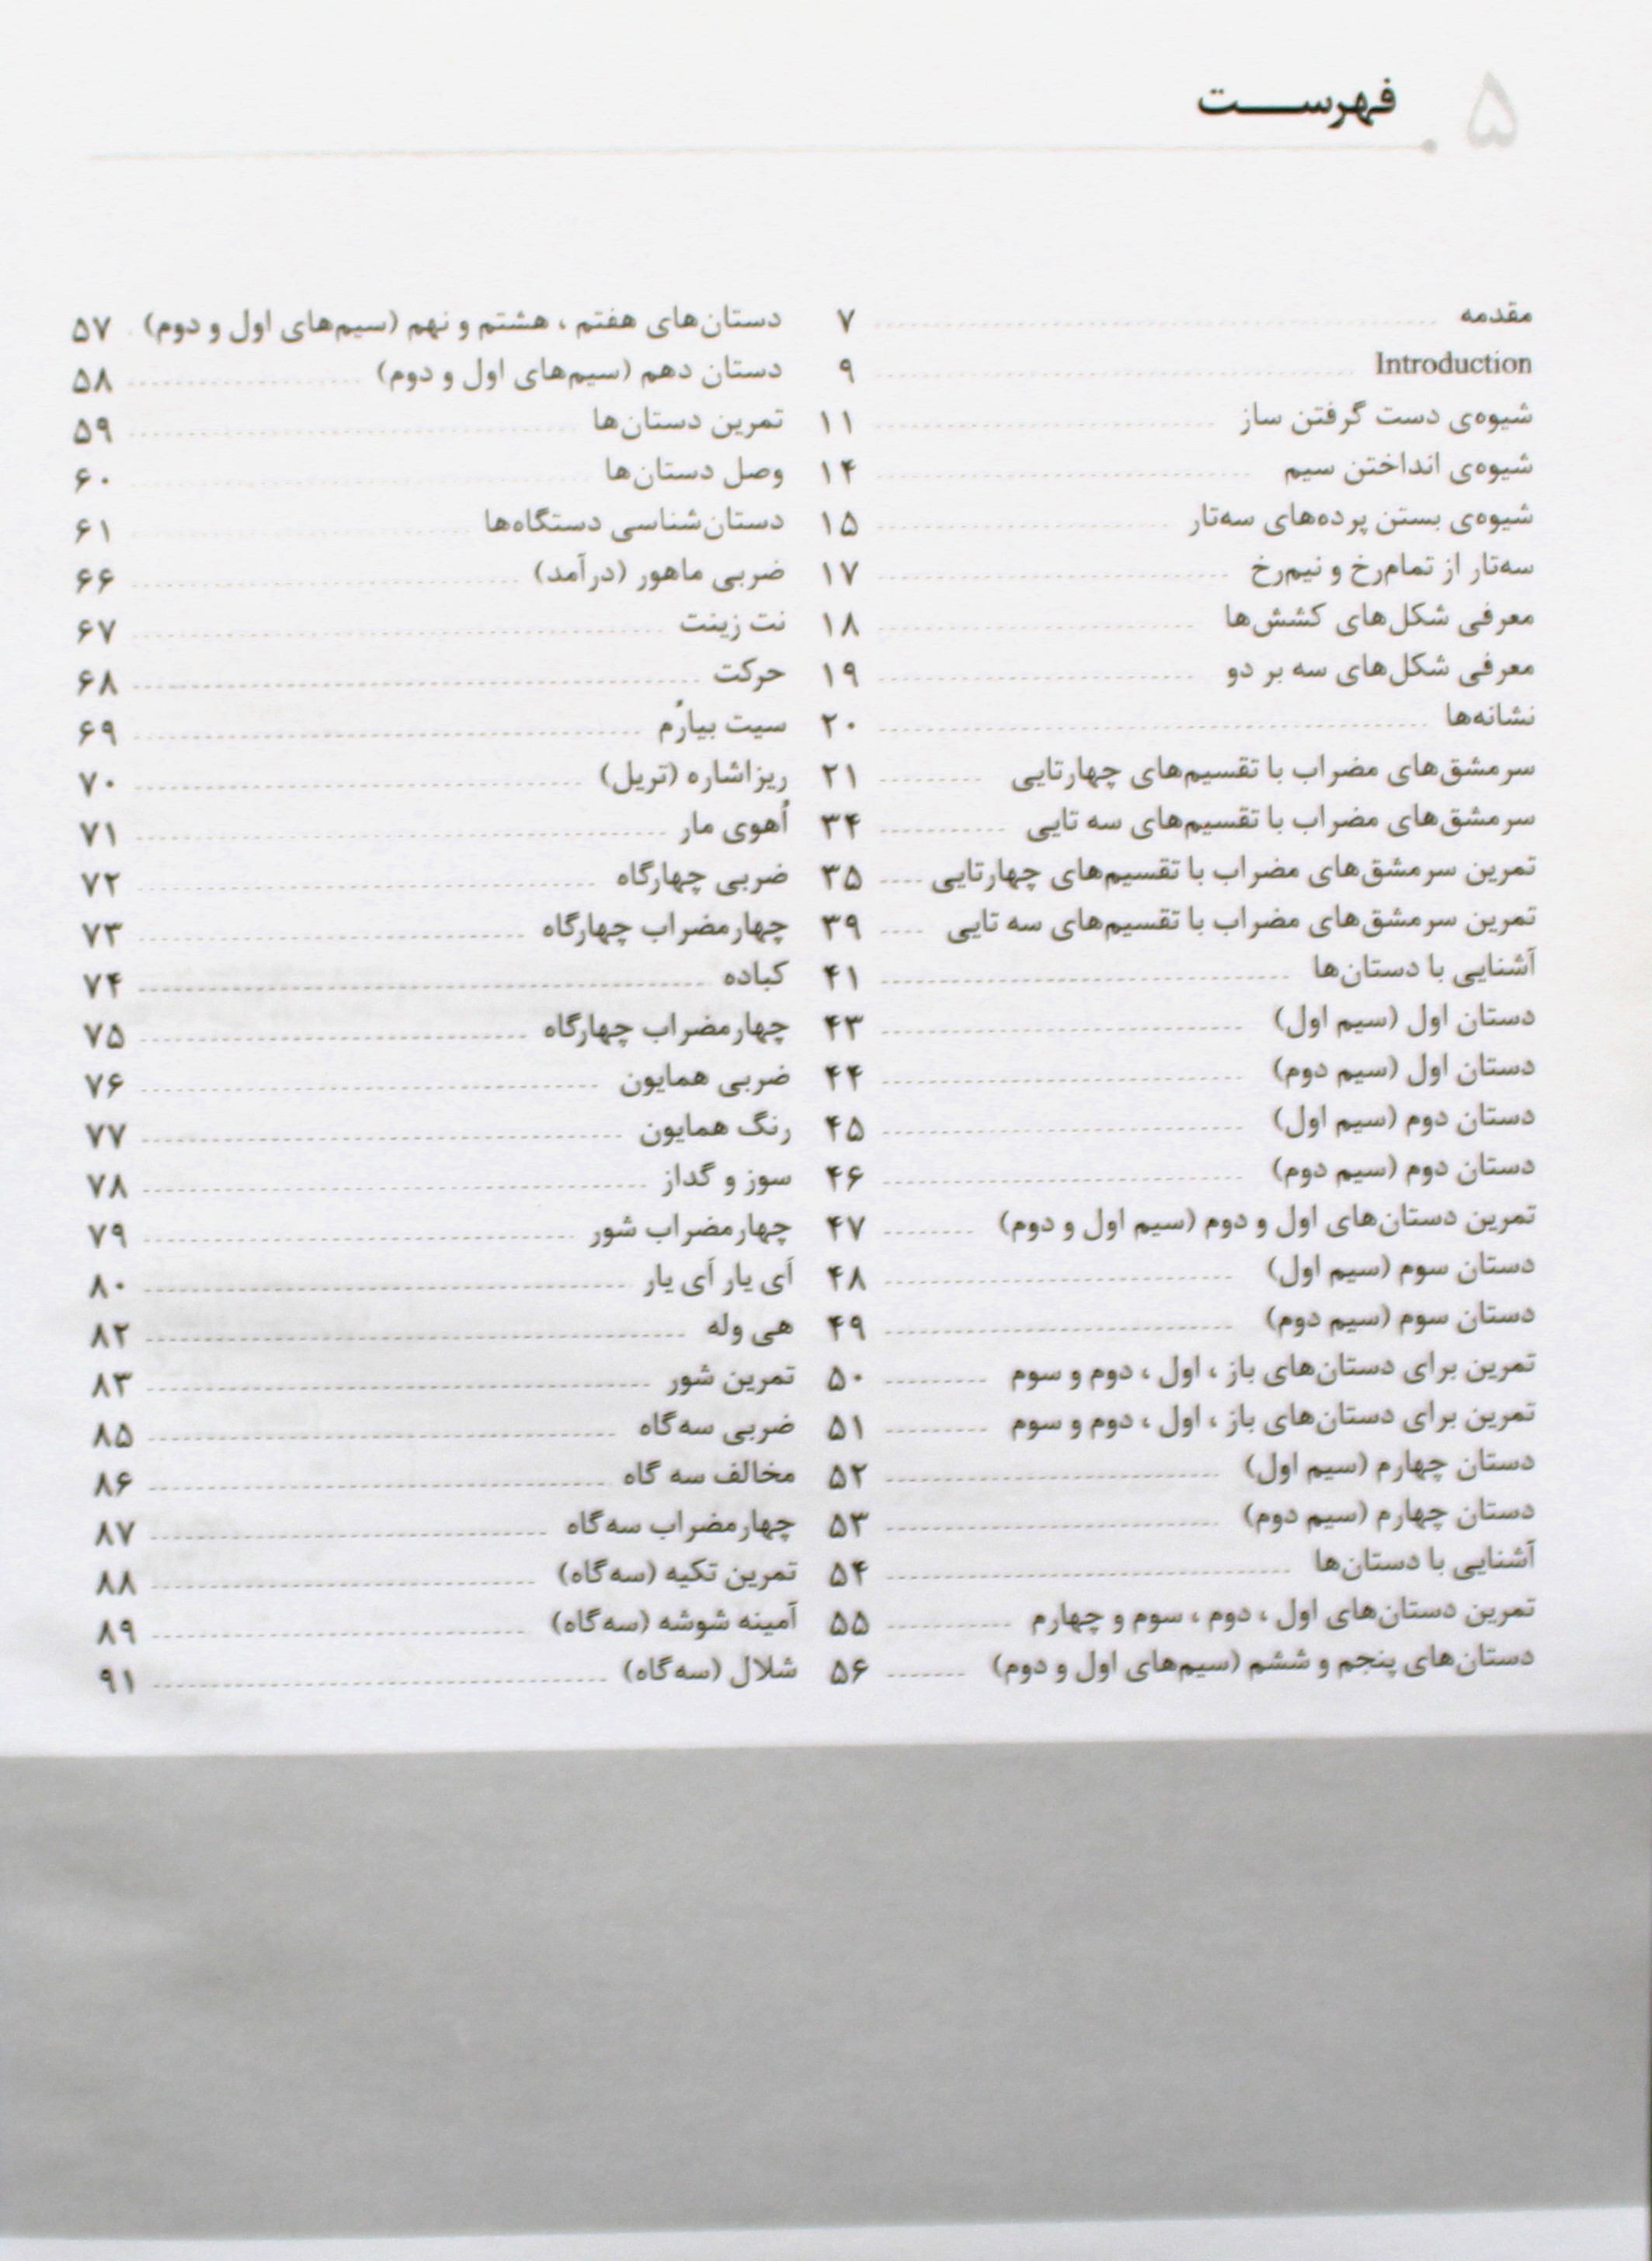 ۵
فهرست
مقدمه ۷
Introduction ۹
شیوه‌ی دست گرفتن ساز ۱۱
شیوه‌ی انداختن سیم ۱۴
شیوه‌ی بستن پرده‌های سه‌تار ۱۵
سه‌تار از تمام‌رخ و نیم‌رخ ۱۷
معرفی شکل‌های کشش‌ها ۱۸
معرفی شکل‌های سه بر دو ۱۹
نشانه‌ها ۲۰
سرمشق‌های مضراب با تقسیم‌های چهارتایی ۲۱
سرمشق‌های مضراب با تقسیم‌های سه تایی ۳۴
تمرین سرمشق‌های مضراب با تقسیم‌های چهارتایی ۳۵
تمرین سرمشق‌های مضراب با تقسیم‌های سه تایی ۳۹
آشنایی با دستان‌ها ۴۱
دستان اول (سیم اول) ۴۳
دستان اول (سیم دوم) ۴۴
دستان دوم (سیم اول) ۴۵
دستان دوم (سیم دوم) ۴۶
تمرین دستان‌های اول و دوم (سیم اول و دوم) ۴۷
دستان سوم (سیم اول) ۴۸
دستان سوم (سیم دوم) ۴۹
تمرین برای دستان‌های باز ، اول ، دوم و سوم ۵۰
تمرین برای دستان‌های باز ، اول ، دوم و سوم ۵۱
دستان چهارم (سیم اول) ۵۲
دستان چهارم (سیم دوم) ۵۳
آشنایی با دستان‌ها ۵۴
تمرین دستان‌های اول ، دوم ، سوم و چهارم ۵۵
دستان‌های پنجم و ششم (سیم‌های اول و دوم) ۵۶
دستان‌های هفتم ، هشتم و نهم (سیم‌های اول و دوم) ۵۷
دستان دهم (سیم‌های اول و دوم) ۵۸
تمرین دستان‌ها ۵۹
وصل دستان‌ها ۶۰
دستان‌شناسی دستگاه‌ها ۶۱
ضربی ماهور (درآمد) ۶۶
نت زینت ۶۷
حرکت ۶۸
سیت بیارُم ۶۹
ریزاشاره (تریل) ۷۰
اُهوی مار ۷۱
ضربی چهارگاه ۷۲
چهارمضراب چهارگاه ۷۳
کباده ۷۴
چهارمضراب چهارگاه ۷۵
ضربی همایون ۷۶
رنگ همایون ۷۷
سوز و گداز ۷۸
چهارمضراب شور ۷۹
آی یار آی یار ۸۰
هی وله ۸۲
تمرین شور ۸۳
ضربی سه‌گاه ۸۵
مخالف سه گاه ۸۶
چهارمضراب سه‌گاه ۸۷
تمرین تکیه (سه‌گاه) ۸۸
آمینه شوشه (سه‌گاه) ۸۹
شلال (سه‌گاه) ۹۱